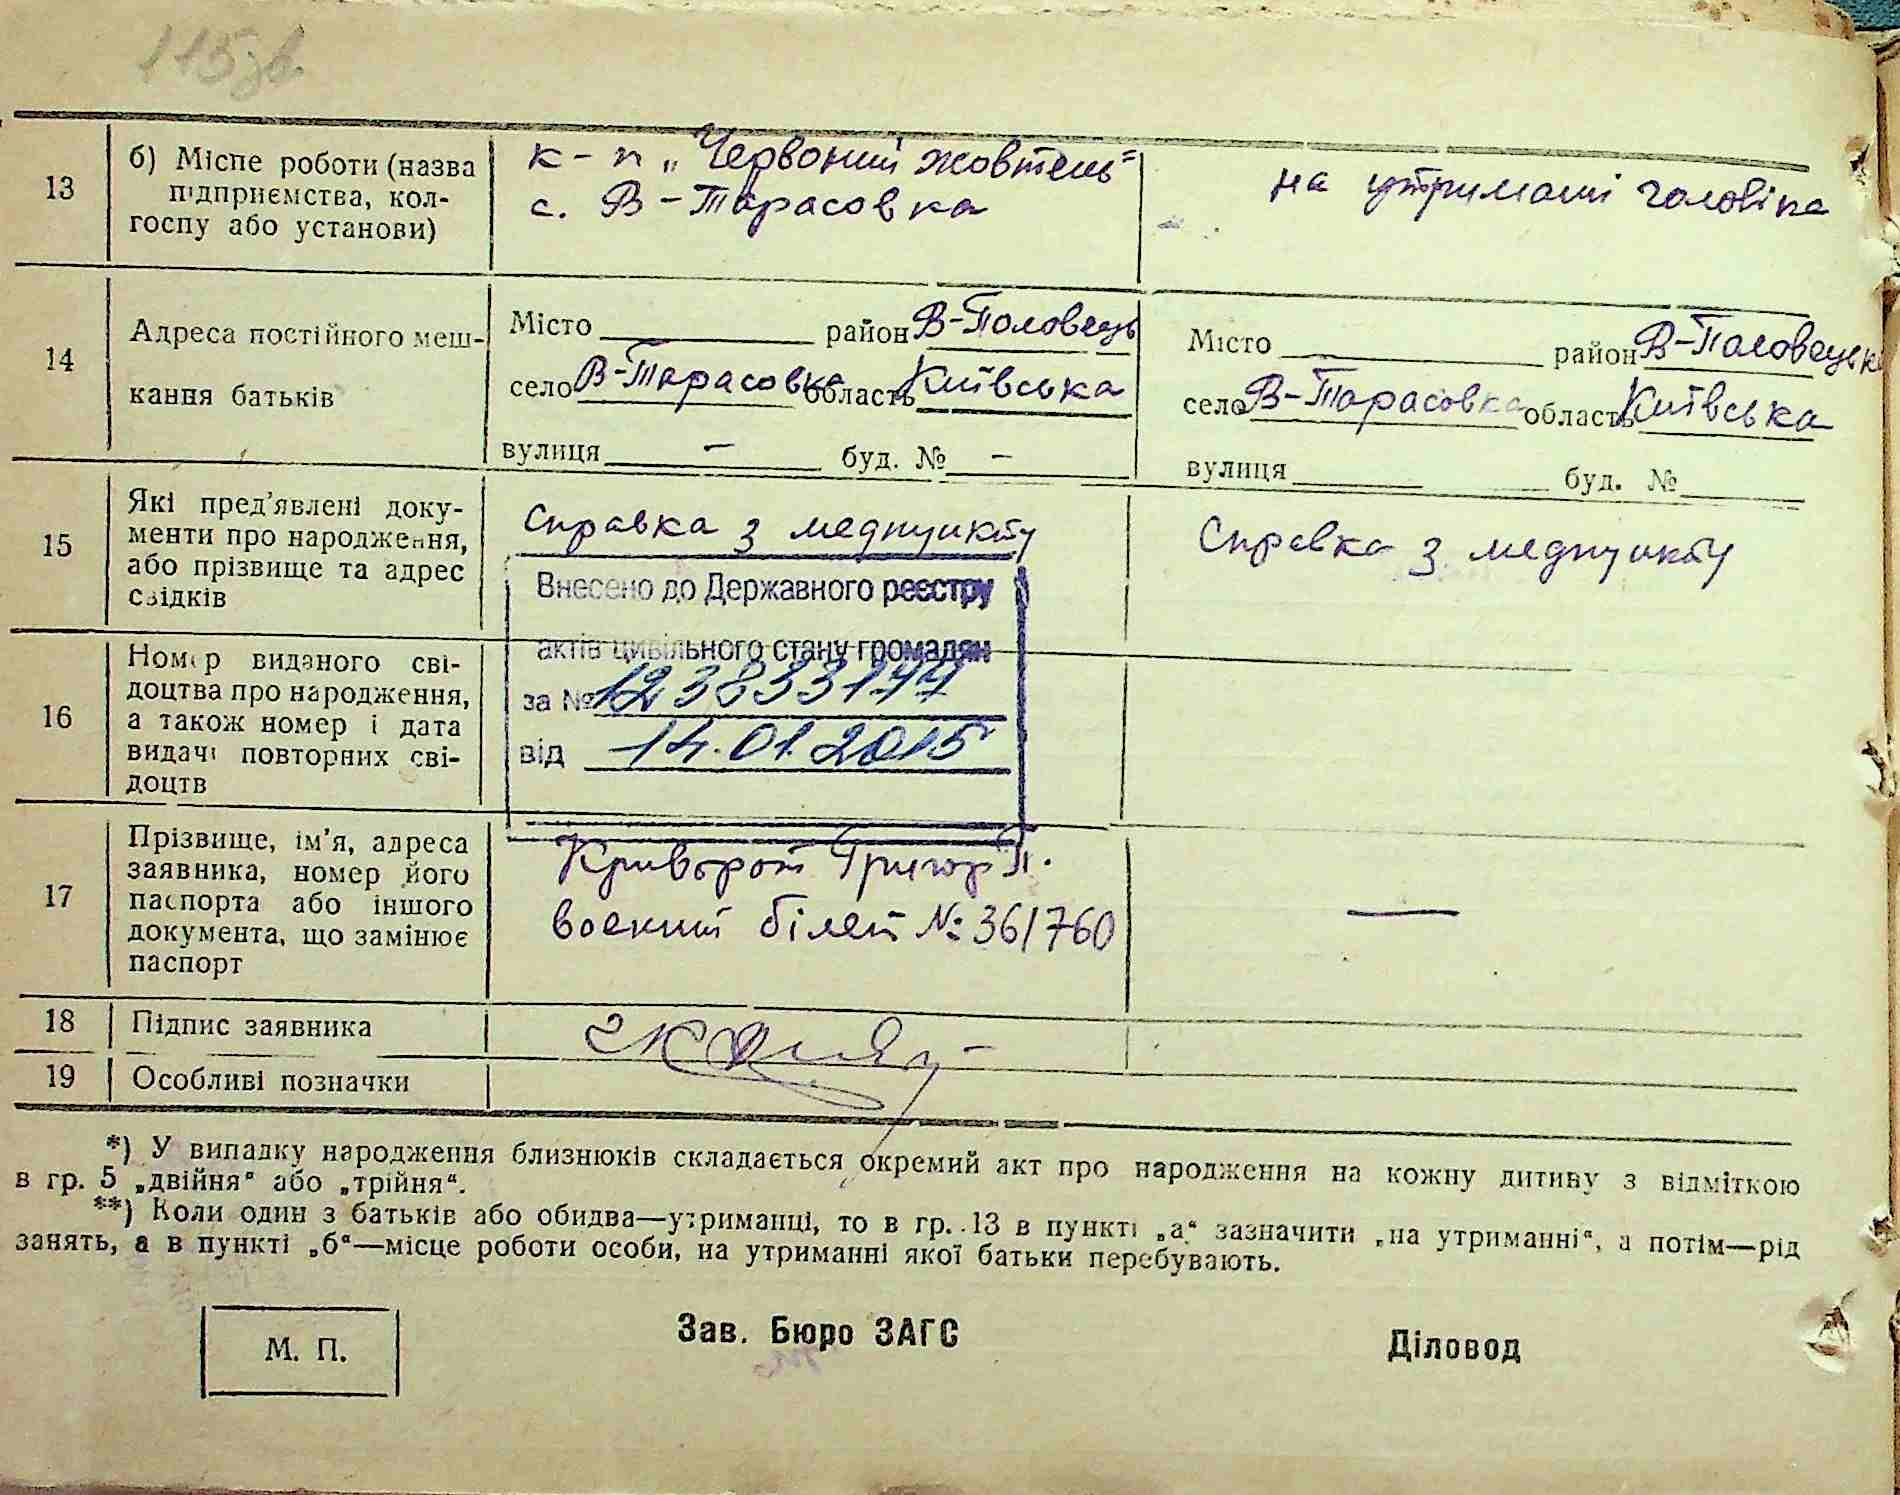 115зв.
13
б) Місце роботи (назва
підприємства, кол-
госпу або установи)
к-п „Червоний жовтень"
с. В-Тарасовка
на утримані чоловіка
14
Адреса постійного меш-
кання батьків
Місто район В-Половець
село В-Тарасовка область Київська
вулиця – буд. № –
Місто район В-Половецьк
село В-Тарасовка область Київська
вулиця буд. №
15
Які пред'явлені доку-
менти про народження,
або прізвище та адрес
свідків
Справка з медпункту
Справка з медпункту
Внесено до Державного реєстру
актів цивільного стану громадян
за №
від 14.01.2015
16
Номер виданого сві-
доцтва про народження,
а також номер і дата
видачі повторних сві-
доцтв
17
Прізвище, ім'я, адреса
заявника, номер його
паспорта або іншого
документа, що замінює
паспорт
Криворот Григор П.
воєнний білет № 361760
—
18
Підпис заявника
19
Особливі позначки
*) У випадку народження близнюків складається окремий акт про народження на кожну дитину з відміткою
в гр. 5 „двійня" або „трійня".
**) Коли один з батьків або обидва—утриманці, то в гр. 13 в пункті „а" зазначити „на утриманні", а потім—рід
занять, а в пункті „б"—місце роботи особи, на утриманні якої батьки перебувають.
М. П.
Зав. Бюро ЗАГС
Діловод